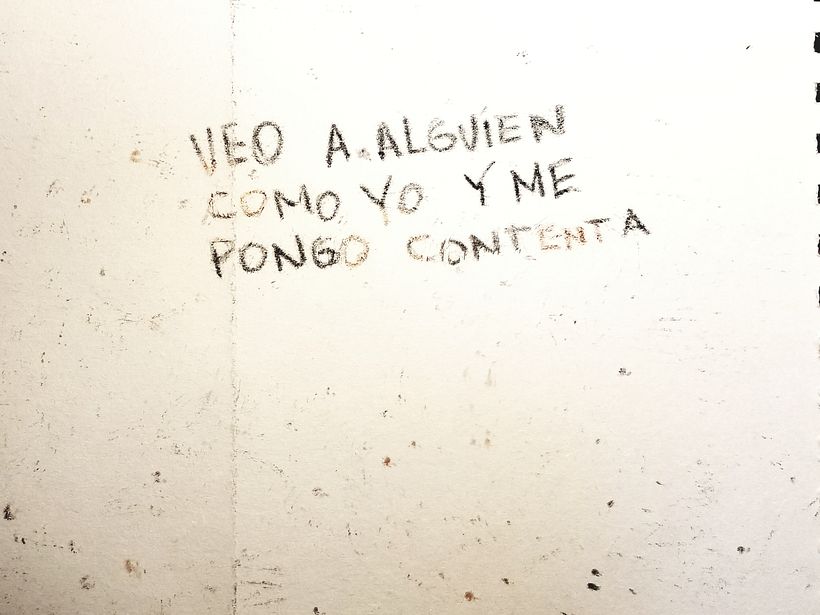 VEO A.ALGUIEN
COMO YO Y ME
PONGO CONTENTA